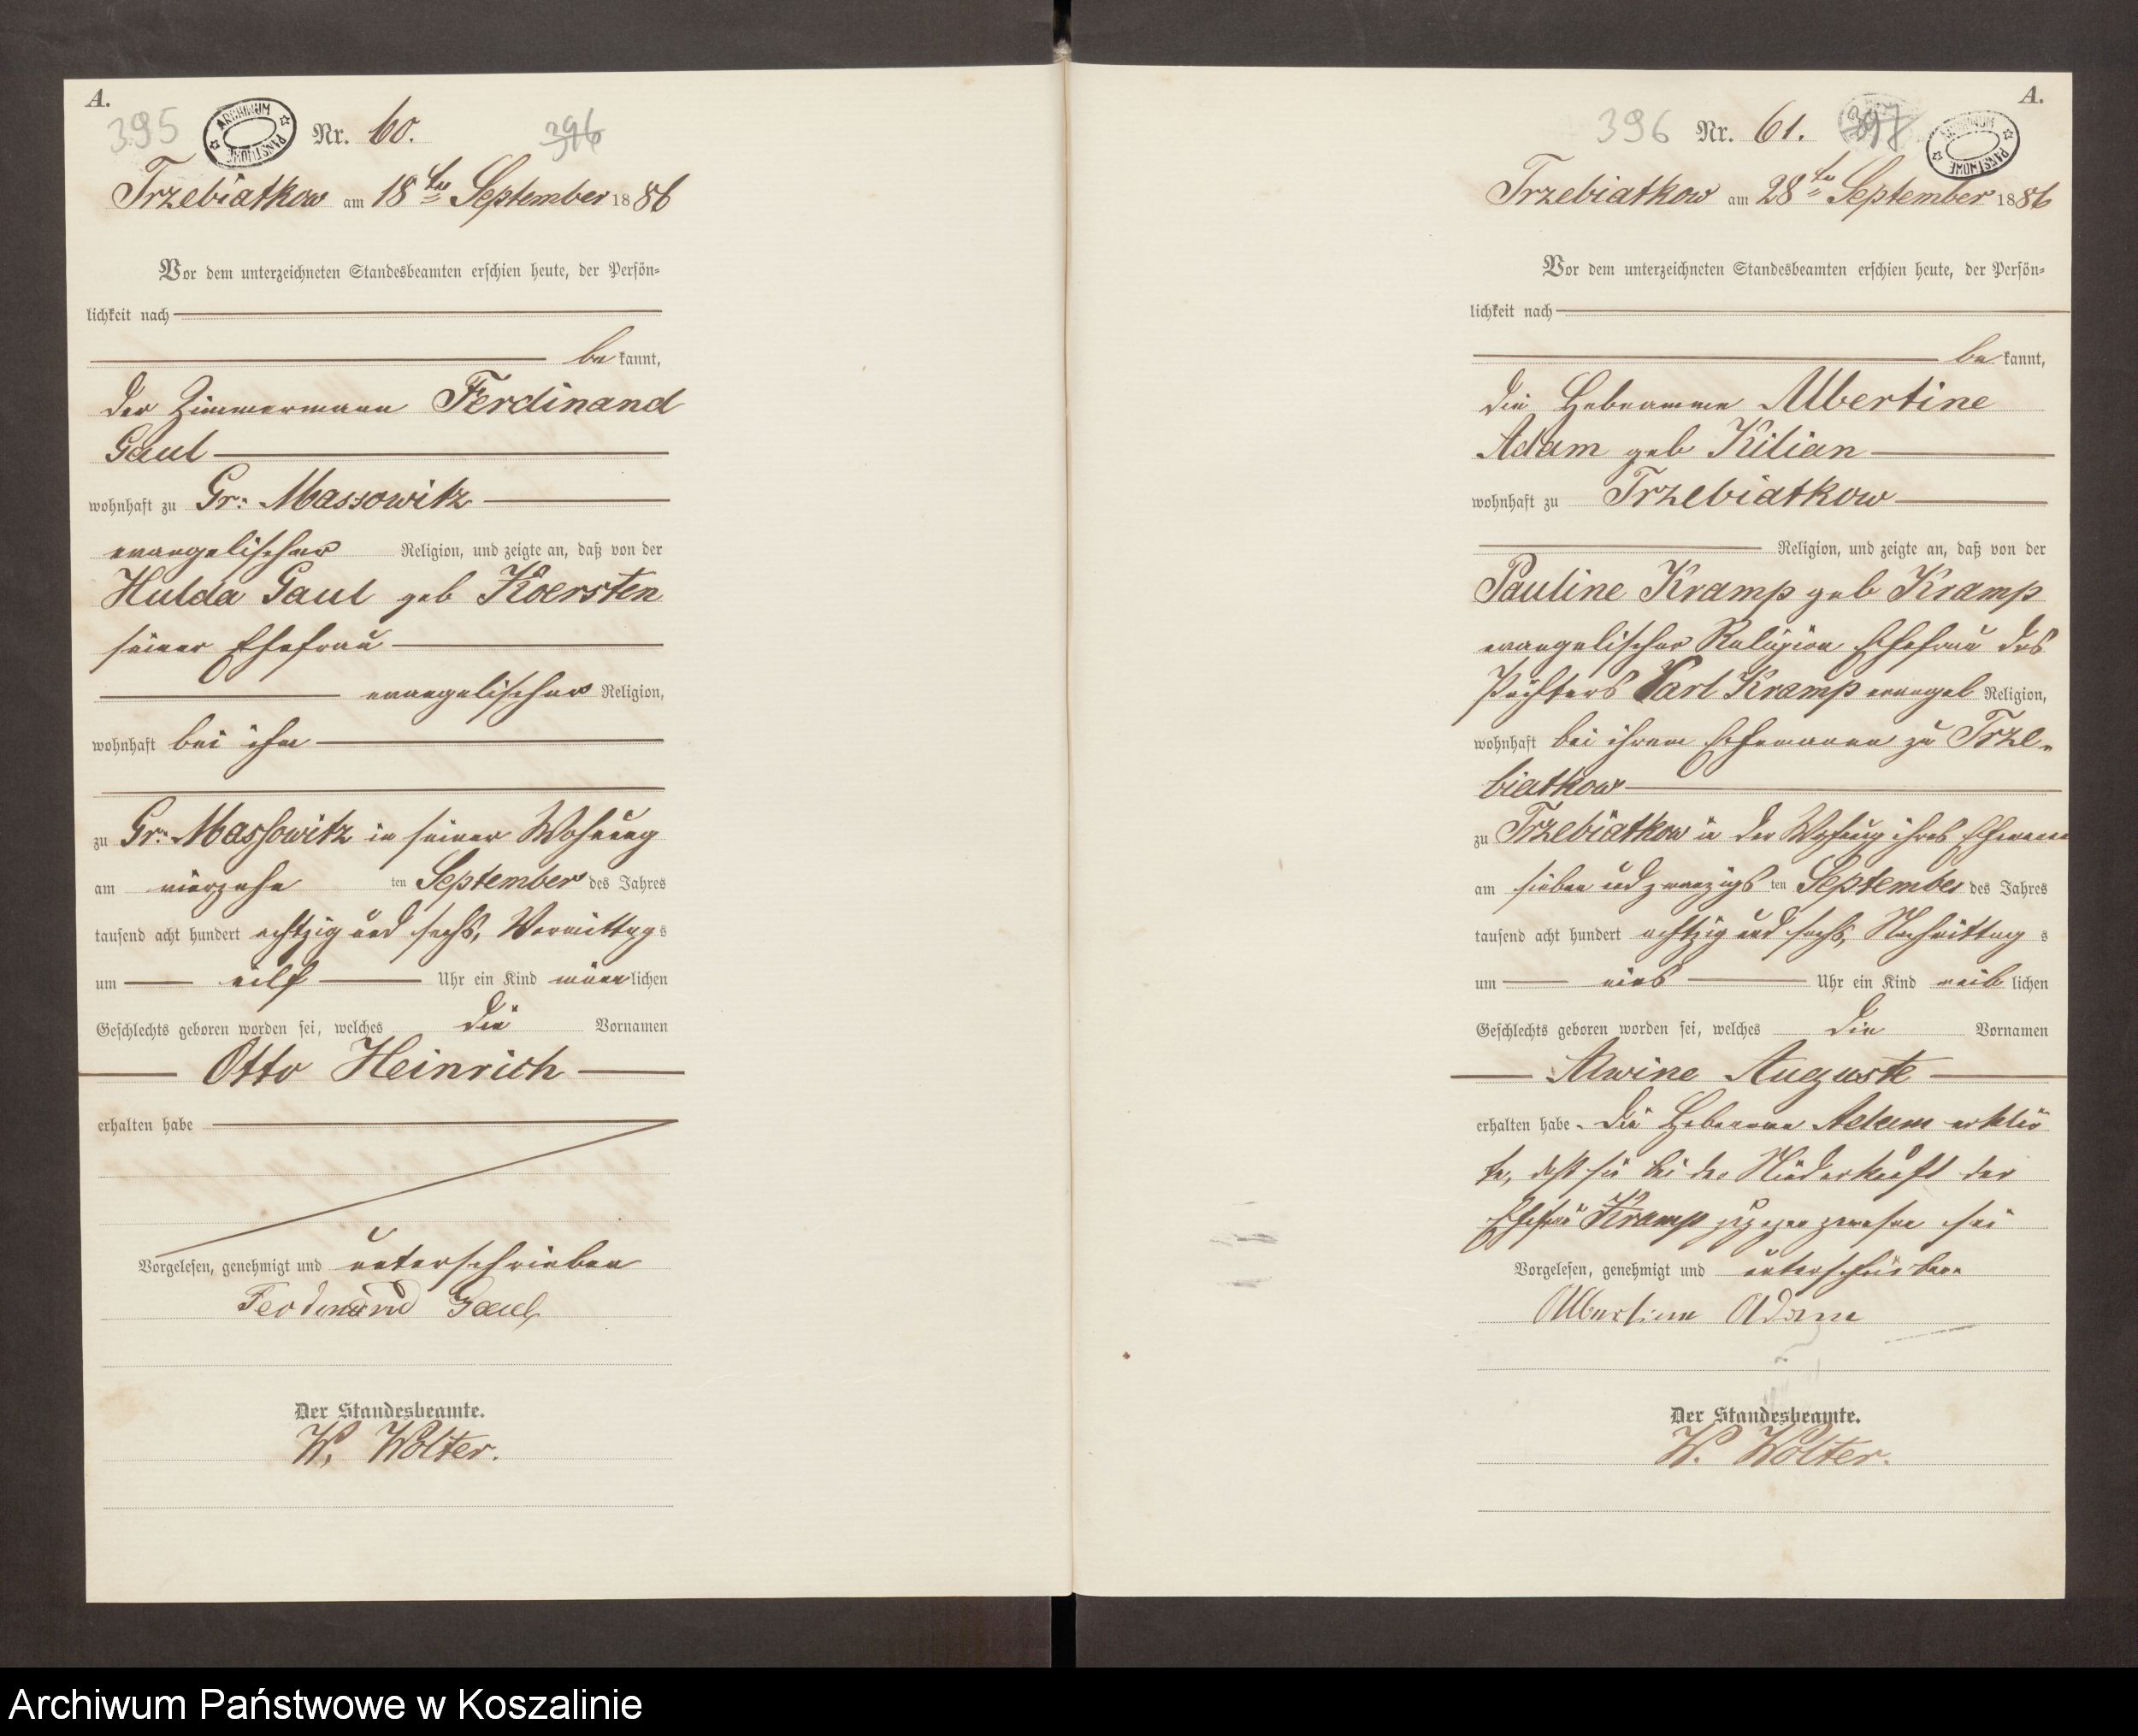 A.
395
ARCHIWUM PAŃSTWOWE
Nr. 60.
396
Trzebiatkow am 18ten September 1886
Vor dem unterzeichneten Standesbeamten erschien heute, der Persön-
lichkeit nach
be kannt,
der Zimmermann Ferdinand
Gaul
wohnhaft zu Gr: Massowitz
evangelischer Religion, und zeigte an, daß von der
Hulda Gaul geb Koersten
seiner Ehefrau
evangelischer Religion,
wohnhaft bei ihm
zu Gr: Massowitz in seiner Wohnung
am vierzehn ten September des Jahres
tausend acht hundert achtzig und sechs, Vormittag s
um eilf Uhr ein Kind männ lichen
Geschlechts geboren worden sei, welches die Vornamen
Otto Heinrich
erhalten habe
Vorgelesen, genehmigt und unterschrieben
Ferdinand Gaul
Der Standesbeamte.
W. Wolter.
A.
396
Nr. 61.
397
ARCHIWUM PAŃSTWOWE
Trzebiatkow am 28ten September 1886
Vor dem unterzeichneten Standesbeamten erschien heute, der Persön-
lichkeit nach
be kannt,
die Hebeamme Albertine
Adam geb Kilian
wohnhaft zu Trzebiatkow
Religion, und zeigte an, daß von der
Pauline Kramp geb Kramp
evangelischer Religion Ehefrau des
Pächters Karl Kramp evangel Religion,
wohnhaft bei ihrem Ehemanne zu Trze-
biatkow
zu Trzebiatkow in der Wohnung ihres Ehemann
am sieben und zwanzigs ten September des Jahres
tausend acht hundert achtzig und sechs, Nachmittag s
um eins Uhr ein Kind weib lichen
Geschlechts geboren worden sei, welches die Vornamen
Alwine Auguste
erhalten habe. Die Hebeamme Adam erklär
te, daß sie bei der Niederkunft der
Ehefrau Kramp zugegen gewesen sei
Vorgelesen, genehmigt und unterschrieben
Albertine Adam
Der Standesbeamte.
W. Wolter.
Archiwum Państwowe w Koszalinie